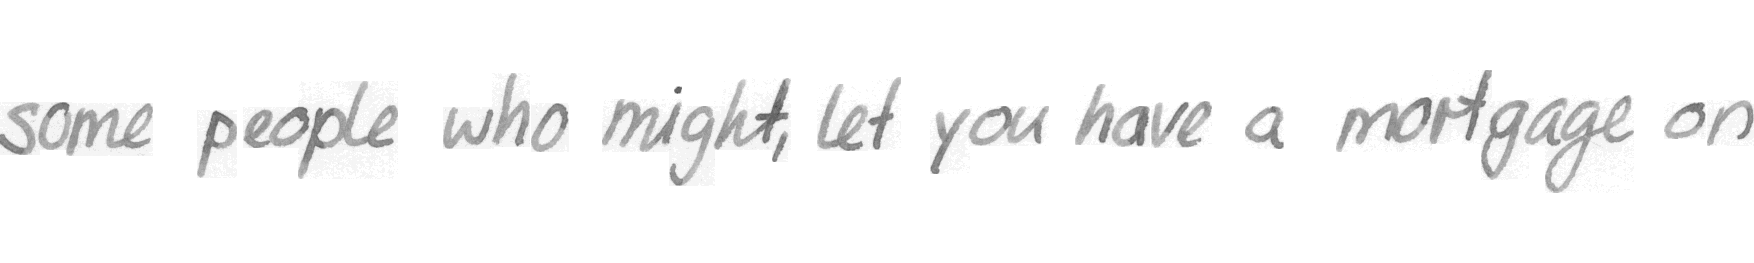 some people who might, let you have a mortgage on